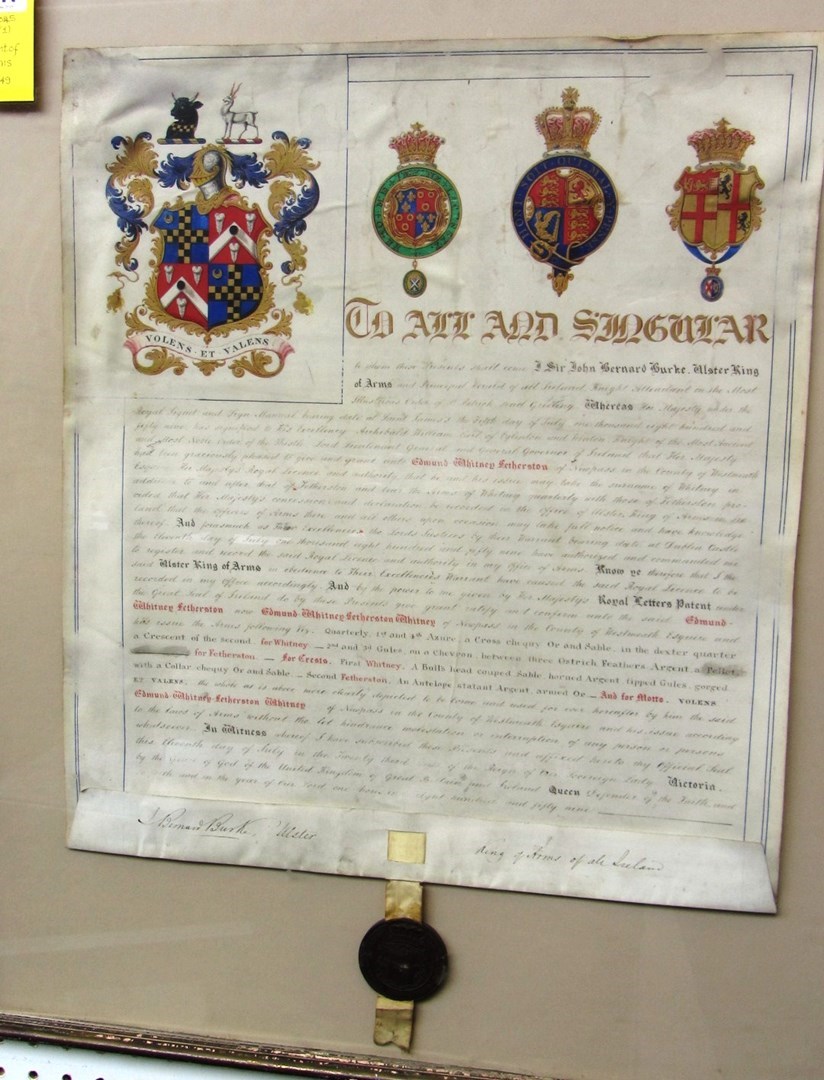 VOLENS · ET · VALENS
TO ALL AND SINGULAR
to whom these Presents shall come I Sir John Bernard Burke, Ulster King
of Arms and Principal Herald of all Ireland Knight Attendant on the Most
Illustrious Order of St Patrick send Greeting. Whereas Her Majesty under the
Royal Signet and Sign Manual bearing date at Saint James's the Fifth day of July one thousand eight hundred and
fifty nine has signified to His Excellency Archibald William Earl of Eglinton and Winton Knight of the Most Ancient
and Most Noble Order of the Thistle Lord Lieutenant General and General Governor of Ireland that Her Majesty
had been graciously pleased to give and grant unto Edmund-Whitney Fetherston of Newpass in the County of Westmeath
Esqre Her Majesty's Royal Licence and authority that he and his issue may take the surname of Whitney in
addition to and after that of Fetherston and bear the Arms of Whitney quarterly with those of Fetherston pro-
vided that Her Majesty's concession and declaration be recorded in the Office of Ulster King of Arms
that the officers of Arms there and all others upon occasion may take full notice and have knowledge
thereof And forasmuch as Their Excellencies the Lords Justices by their Warrant bearing date at Dublin Castle
the Eleventh day of July one thousand eight hundred and fifty nine have authorised and commanded me
to register and record the said Royal Licence and authority in my Office of Arms Know ye therefore that I the
said Ulster King of Arms in obedience to Their Excellencies Warrant have caused the said Royal Licence to be
recorded in my Office accordingly. And by the power to me given by Her Majesty's Royal Letters Patent under
the Great Seal of Ireland do by these Presents give grant ratify and confirm unto the said Edmund-
Whitney Fetherston now Edmund-Whitney-Fetherston Whitney of Newpass in the County of Westmeath Esquire and
his issue the Arms following viz. Quarterly, 1st and 4th Azure, a Cross chequy Or and Sable, in the dexter quarter
a Crescent of the second, for Whitney — 2nd and 3rd Gules, on a Chevron, between three Ostrich Feathers Argent a Pellet,
for Fetherston. — For Crests. First Whitney. A Bulls head couped Sable horned Argent tipped Gules, gorged
with a Collar chequy Or and Sable. — Second Fetherston. An Antelope statant Argent, armed Or — And for Motto. VOLENS
ET VALENS. the whole as is above more clearly depicted to be borne and used for ever hereafter by him the said
Edmund-Whitney-Fetherston Whitney of Newpass in the County of Westmeath Esquire and his issue according
to the Laws of Arms without the let hindrance molestation or interruption of any person or persons
whatsoever. In Witness whereof I have subscribed these Presents and affixed hereto my Official Seal
this Eleventh day of July in the Twenty third year of the Reign of Our Sovereign Lady Victoria.
by the Grace of God of the United Kingdom of Great Britain and Ireland Queen Defender of the Faith, and
so forth and in the year of Our Lord one thousand eight hundred and fifty nine
J. Bernard Burke. Ulster
King of Arms of all Ireland